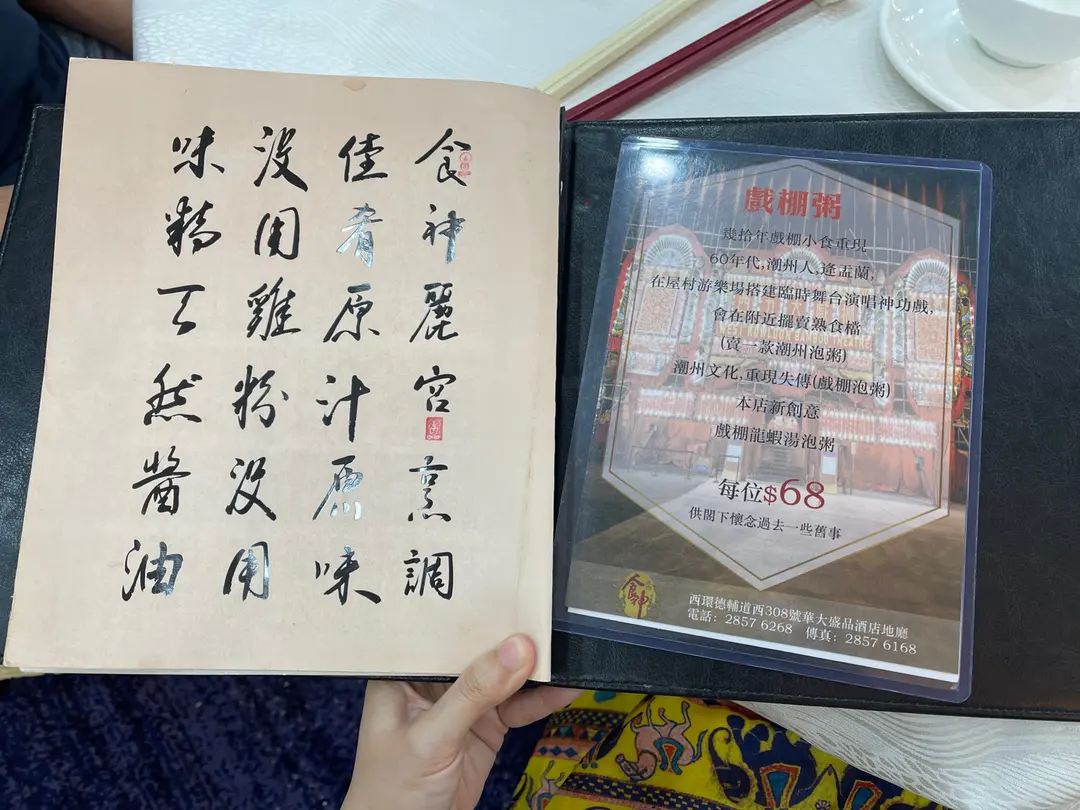 食神麗宮烹調
佳肴原汁原味
没用雞粉没用
味精天然醬油
戲棚粥
幾拾年戲棚小食重現
60年代,潮州人,逢盂蘭,
在屋村游樂場搭建臨時舞台演唱神功戲,
會在附近擺賣熟食檔
(賣一款潮州泡粥)
潮州文化,重現失傳(戲棚泡粥)
本店新創意
戲棚龍蝦湯泡粥
每位$68
供閣下懷念過去一些舊事
食神
西環德輔道西308號華大盛品酒店地廳
電話: 2857 6268 傳真: 2857 6168